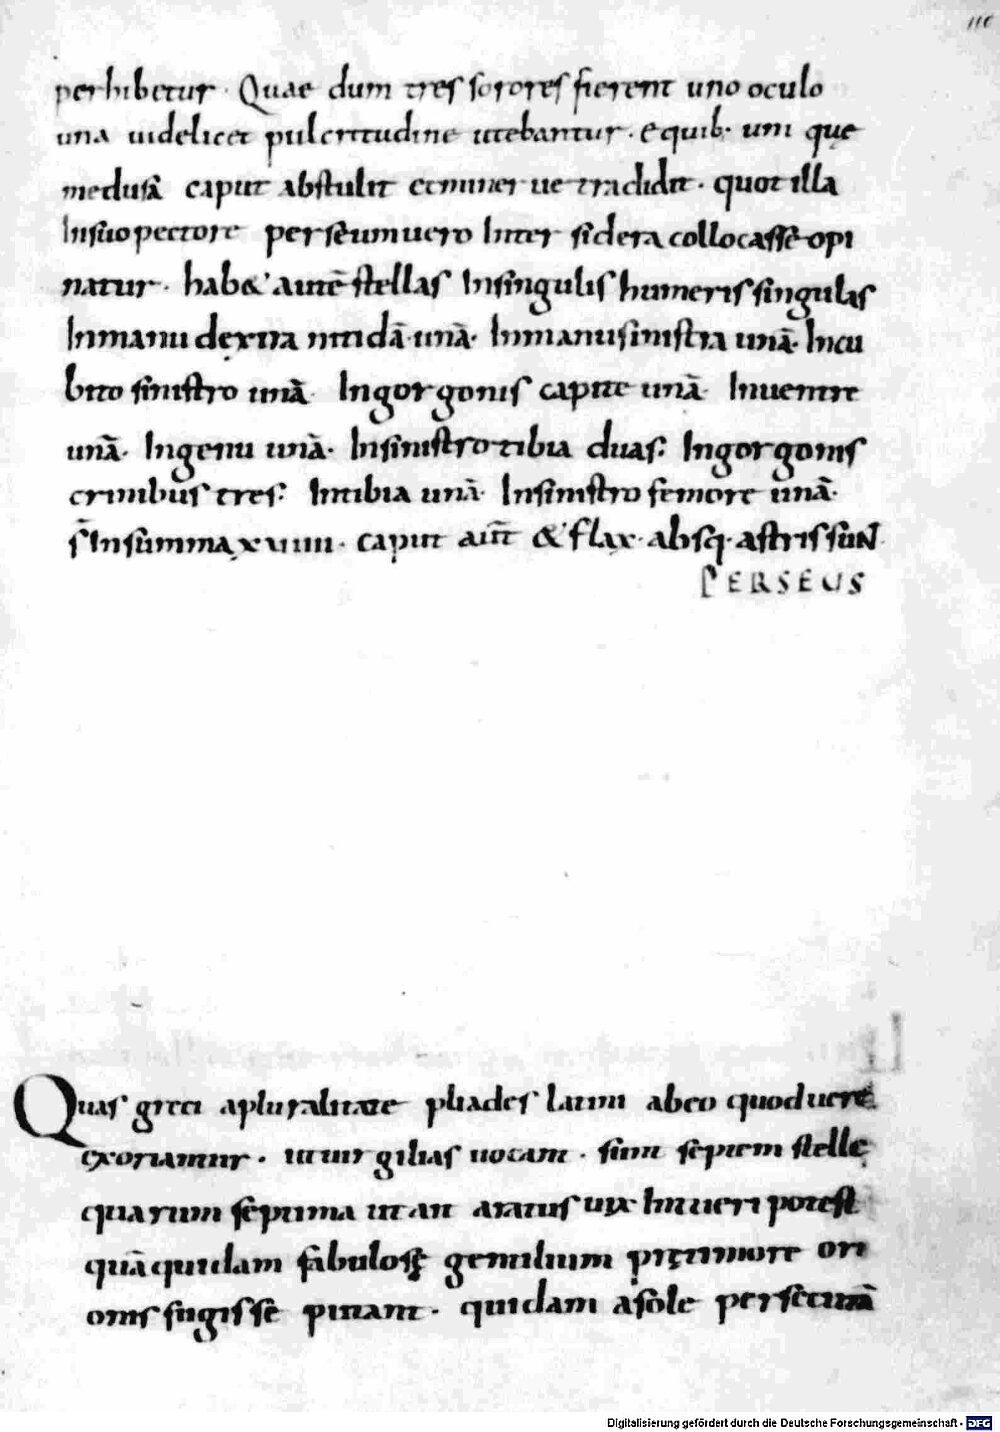 116
perhibetur · Quae dum tres sorores fierent uno oculo
una uidelicet pulcritudine utebantur · equib· uni quę
medusā caput abstulit et miner ue tradidit · quot illa
Insuo pectore perseum uero Inter sidera collocasse opi
natur · hab&' autē stellas Insingulis humeris singulas
Inmanu dextra nitidā· unā· Inmanu sinistra unā· Incu
bito sinistro unā· Ingorgonis capite unā· Inuentre
unā· Ingenu unā· Insinistro tibia duas: Ingorgonis
crinibus tres: Intibia unā· Insinistro femore unā·
s̄ Insumma xuiiii · caput aut̄ & flax· absq· astris suN
PERSEUS
Quas greci apluralitate pliades latini abeo quod uere
exoriantur · uirgilias uocant · sunt septem stellę
quarum septima ut ait aratus uix Intueri potest
quā quidam fabulosę gentilium timore ori
onis fugisse putant · quidam asole persecutā
Digitalisierung gefördert durch die Deutsche Forschungsgemeinschaft - DFG